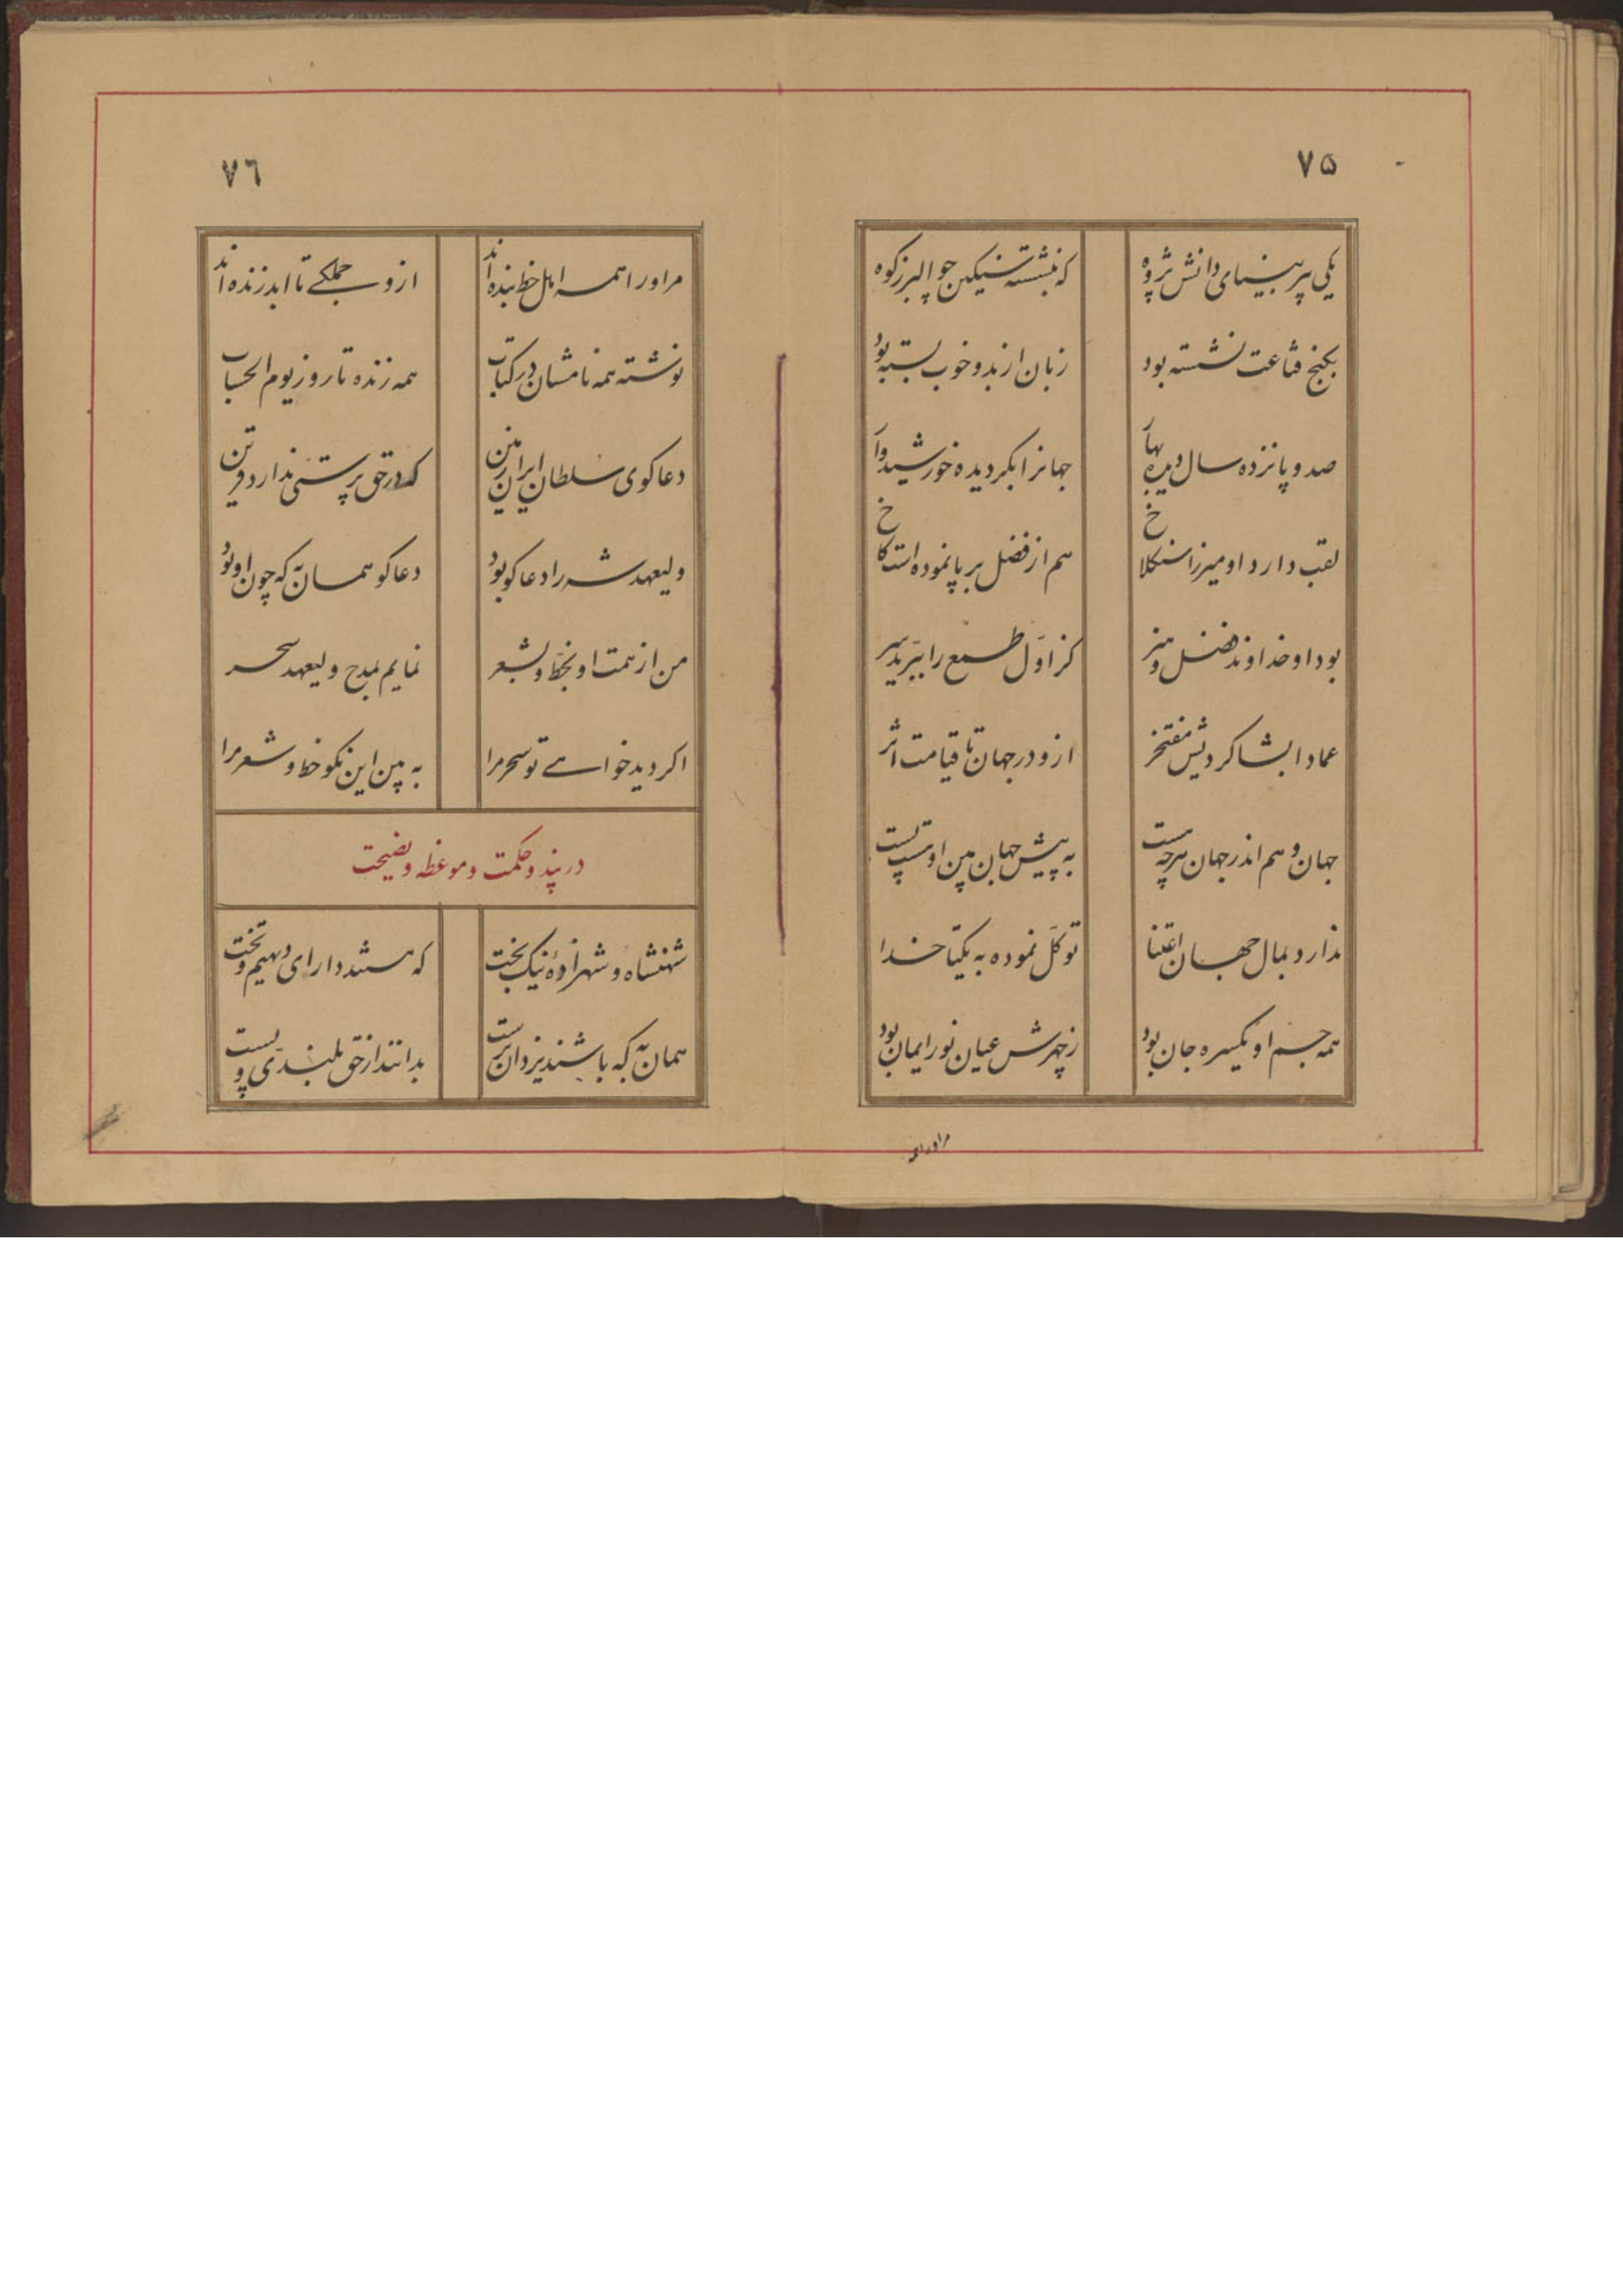 ۷۵
یکی پیر بینای دانش پژوه
که بنشسته سنگین چو البرز کوه
بکنج قناعت نشسته بود
زبان از بد و خوب بسته بود
صد و پانزده سال دیده بهار
جهانرا بگردیده خورشیدوار
لقب دارد او میرزا سنگلاخ
هم از فضل بر پا نموده است کاخ
بود او خداوند فضل و هنر
کز اول طمع را ببرید سر
عماد ابشاکردیش مفتخر
ازو در جهان تا قیامت اثر
جهان و هم اندر جهان هرچه هست
به پیش جهان بین او پست پست
ندارد بمال جهان اعتنا
توکل نموده به یکتا خدا
همه جسم او یکسره جان بود
ز چهرش عیان نور ایمان بود
مراورا همه
۷٦
مراورا همه اهل خط بنده اند
ازو جملکے تا ابد زنده اند
نوشته همه نامشان در کتاب
همه زنده تا روز یوم الحساب
دعاکوی سلطان ایران زمین
که در حق پرستی ندارد قرین
ولیعهد شه را دعاکو بود
دعاکو همان به که چون او بود
من از همت او بخط و بشعر
نمایم بمدح ولیعهد سحر
اکر دید خواهے تو سحر مرا
به بین این نکو خط و شعر مرا
در پند و حکمت و موعظه و نصیحت
شهنشاه و شهزادهٔ نیک بخت
که هستند دارای دیهیم و تخت
همان به که باشند یزدان پرست
بدانند از حق بلندی و پست